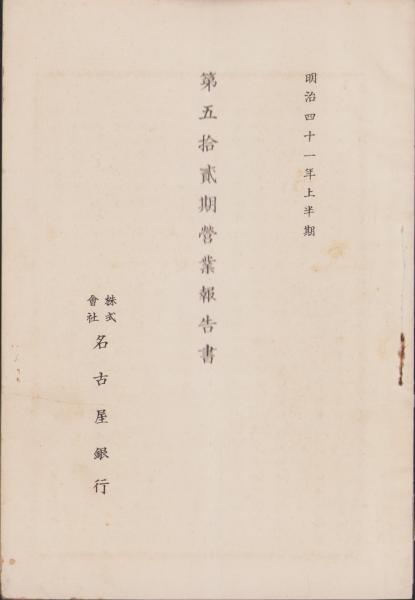 明治四十一年上半期
第五拾貳期營業報告書
株式會社名古屋銀行